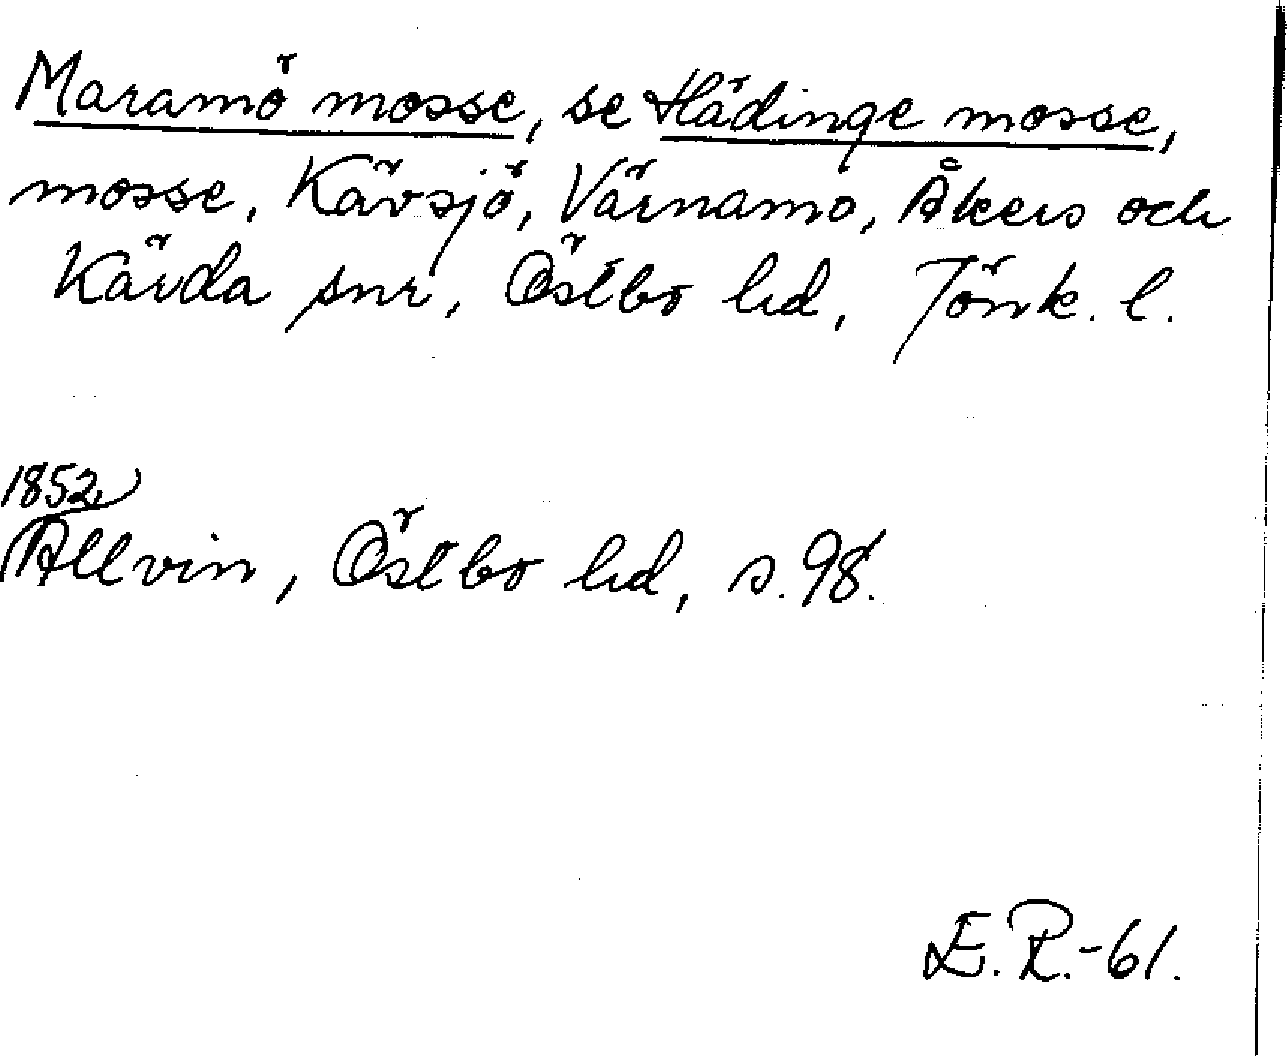 Maramö mosse, se Hädinge mosse,
mosse, Kävsjö, Värnamo, Åkers och
Kärda snr, Östbo hd, Jönk. l.
1852
Allvin, Östbo hd, s. 98.
E.R.-61.